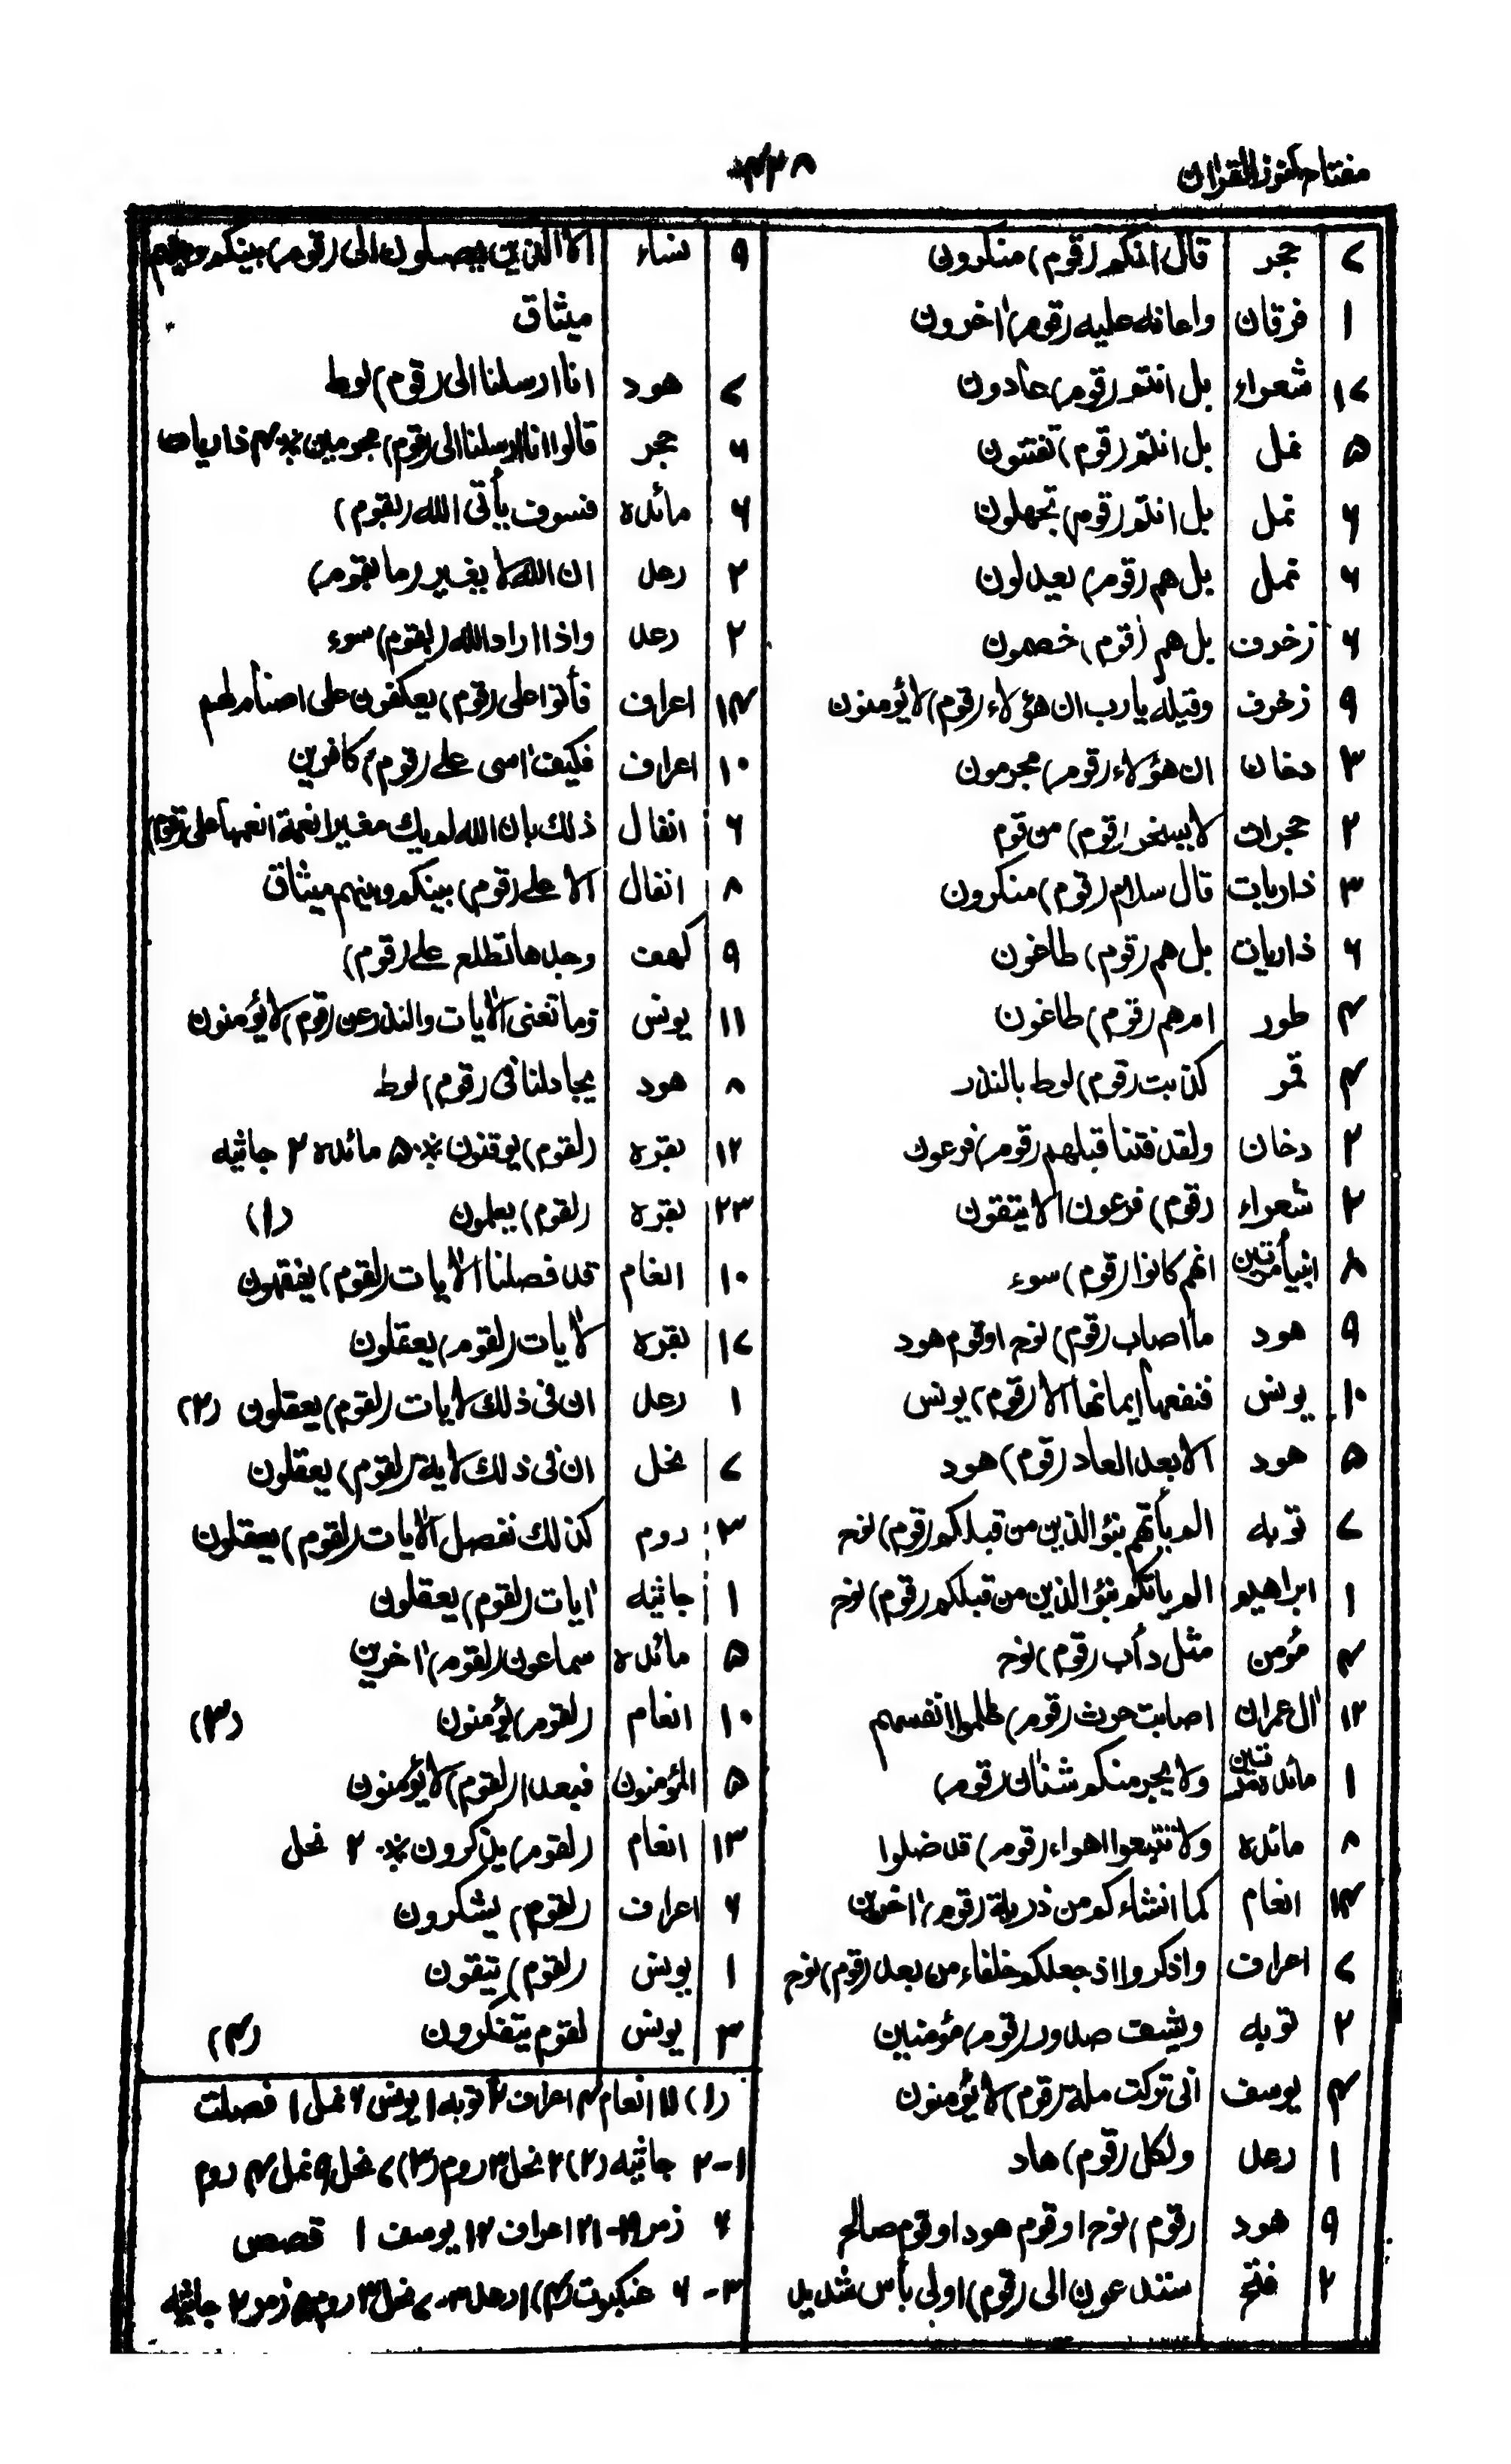 مفتاح كنوز القران
۴۳۸
۷ حجر قال انكم (قوم) منكرون
۱ فرقان واعانه عليه (قوم) اٰخرون
۱۷ شعراء بل انتم (قوم) عادون
۵ نمل بل انتم (قوم) تفتنون
۶ نمل بل انتم (قوم) تجهلون
۶ نمل بل هم (قوم) يعدلون
۶ زخرف بل هم (قوم) خصمون
۹ زخرف وقيله يا رب ان هؤلاء (قوم) لا يؤمنون
۳ دخان ان هؤلاء (قوم) مجرمون
۲ حجرات لا يسخر (قوم) من قوم
۳ ذاريات قال سلام (قوم) منكرون
۶ ذاريات بل هم (قوم) طاغون
۴ طور ام هم (قوم) طاغون
۴ قمر كذبت (قوم) لوط بالنذر
۲ دخان ولقد فتنا قبلهم (قوم) فرعون
۲ شعراء (قوم) فرعون الا يتقون
۸ انبيأ مرتين انهم كانوا (قوم) سوء
۹ هود ما اصاب (قوم) نوح او قوم هود
۱۰ يونس فنفعها ايمانها الا (قوم) يونس
۵ هود الا بعدا لعاد (قوم) هود
۷ توبه الم يأتهم نبؤ الذين من قبلكم (قوم) نوح
۱ ابراهيم الم ياتكم نبؤ الذين من قبلكم (قوم) نوح
۴ مؤمن مثل دأب (قوم) نوح
۱۲ اٰل عمران اصابت حرث (قوم) ظلموا انفسهم
۱ مائده ولا يجرمنكم شناٰن (قوم)
۸ مائده ولا تتبعوا اهواء (قوم) قد ضلوا
۱۴ انعام كما انشاءكم من ذرية (قوم) اٰخرين
۷ اعراف واذكروا اذ جعلكم خلفاء من بعد (قوم) نوح
۲ توبه ويشف صدور (قوم) مؤمنين
۴ يوسف انى تركت ملة (قوم) لا يؤمنون
۱ رعد ولكل (قوم) هاد
۹ هود (قوم) نوح او قوم هود او قوم صالح
۲ فتح ستدعون الى (قوم) اولى بأس شديد
۹ نساء الا الذين يصلون الى (قوم) بينكم وبينهم
ميثاق
۷ هود انا ارسلنا الى (قوم) لوط
۶ حجر قالوا انا ارسلنا الى (قوم) مجرمين ※ ۴ ذاريات
۶ مائده فسوف يأتى الله (بقوم)
۲ رعد ان الله لا يغير (ما بقوم)
۲ رعد واذا اراد الله (بقوم) سوء
۱۴ اعراف فأتوا على (قوم) يعكفون على اصنام لهم
۱۰ اعراف فكيف اٰسى على (قوم) كافرين
۶ انفال ذلك بان الله لم يك مغيرا نعمة انعمها على (قوم)
۸ انفال الا على (قوم) بينكم وبينهم ميثاق
۹ كهف وجدها تطلع على (قوم)
۱۱ يونس وما تغنى الاٰيات والنذر عن (قوم) لا يؤمنون
۸ هود يجادلنا فى (قوم) لوط
۱۲ بقره (لقوم) يوقنون ※ ۵ مائده ۲ جاثيه
۲۳ بقره (لقوم) يعلمون (۱)
۱۰ انعام قد فصلنا الاٰيات (لقوم) يفقهون
۱۷ بقره لاٰيات (لقوم) يعقلون
۱ رعد ان فى ذلك لايات (لقوم) يعقلون (۲)
۷ نحل ان فى ذلك لاية (لقوم) يعقلون
۳ روم كذلك نفصل الاٰيات (لقوم) يعقلون
۱ جاثيه اٰيات (لقوم) يعقلون
۵ مائده سماعون (لقوم) اٰخرين
۱۰ انعام (لقوم) يؤمنون (۳)
۵ المؤمنون فبعدا (لقوم) لا يؤمنون
۱۳ انعام (لقوم) يذكرون ※ ۲ نحل
۶ اعراف (لقوم) يشكرون
۱ يونس (لقوم) يتقون
۳ يونس لقوم يتفكرون (۴)
(۱) ۱۱ انعام ۴ اعراف ۲ توبه ۱ يونس ۴ نمل ۱ فصلت
۱-۲ جاثيه (۲) ۲ نحل ۳ روم (۳) ۷ نحل ۹ نمل ۴ روم
۶ زمر ۱۹-۲۱ اعراف ۱۲ يوسف ۱ قصص
۳-۶ عنكبوت (۴) ۱ رعد ۳-۷ نحل ۳ روم ۵ زمر ۲ جاثيه